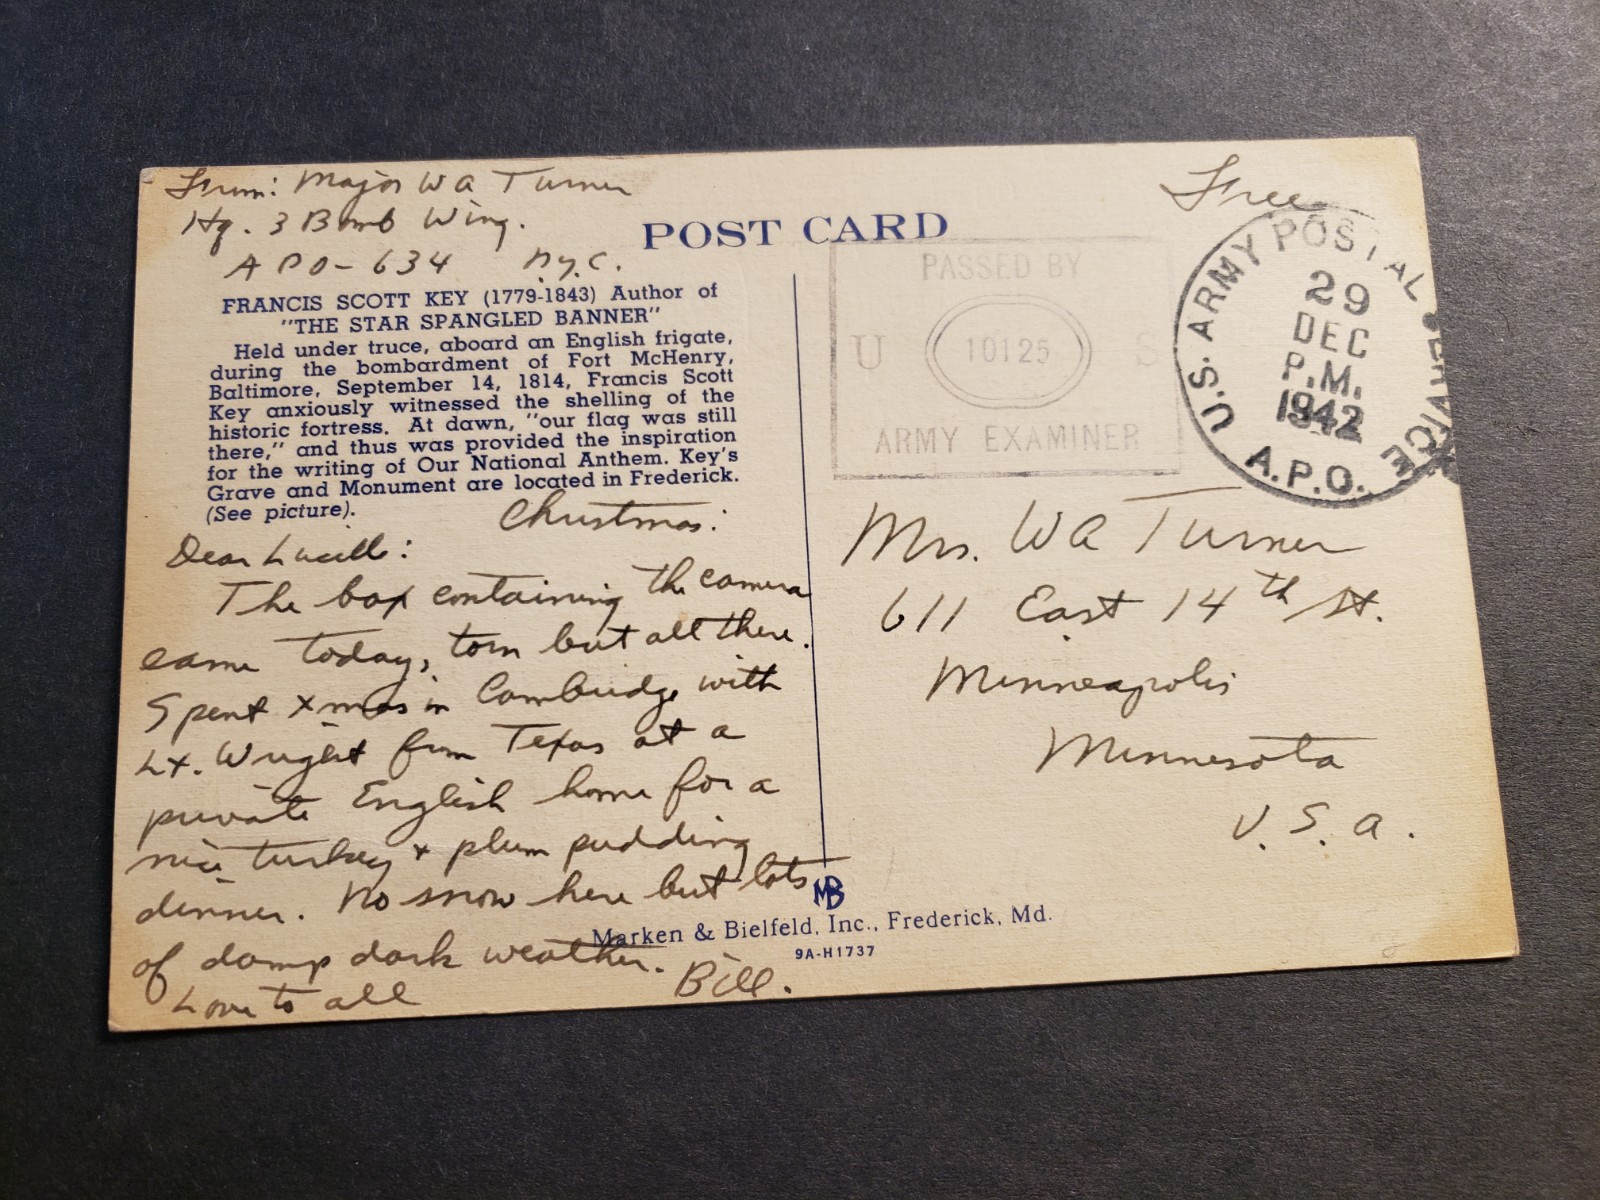 From: Major W A Turner
Hq. 3 Bomb Wing.
APO - 634 N.Y.C.
Free
POST CARD
FRANCIS SCOTT KEY (1779-1843) Author of
"THE STAR SPANGLED BANNER"
Held under truce, aboard an English frigate,
during the bombardment of Fort McHenry,
Baltimore, September 14, 1814, Francis Scott
Key anxiously witnessed the shelling of the
historic fortress. At dawn, "our flag was still
there," and thus was provided the inspiration
for the writing of Our National Anthem. Key's
Grave and Monument are located in Frederick.
(See picture).
Christmas:
Dear Lucille:
The box containing the camera
came today, torn but all there.
Spent Xmas in Cambridge with
Lt. Wright from Texas at a
private English home for a
nice turkey + plum pudding
dinner. No snow here but lots
of damp dark weather.
Love to all Bill.
PASSED BY
U 10125 S
ARMY EXAMINER
U.S. ARMY POSTAL SERVICE
29
DEC
P.M.
1942
A.P.O.
Mrs. W A Turner
611 East 14th St.
Minneapolis
Minnesota
U.S.A.
MB
Marken & Bielfeld, Inc., Frederick, Md.
9A-H1737